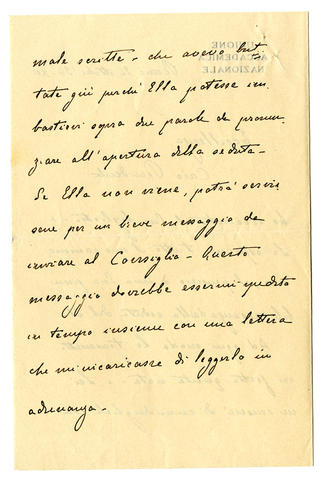 male scritte - che avevo but
tate giù perché Ella potesse im
bastirvi sopra due parole da pronun
ziare all'apertura della seduta -
Se Ella non viene, potrà servir
sene per un breve messaggio da
inviare al Consiglio - Questo
messaggio dovrebbe essermi spedito
in tempo insieme con una lettera
che mi incaricasse di leggerlo in
adunanza -
UNIONE
ACCADEMICA
NAZIONALE